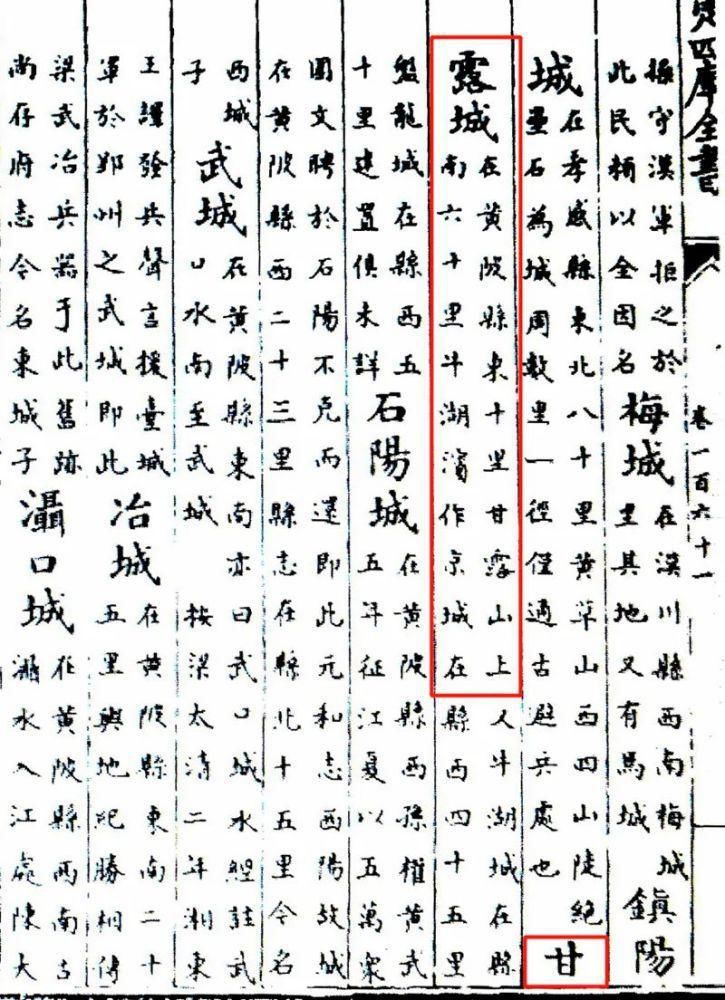 四庫全書
卷一百六十一
據守漢軍拒之於
此民賴以全因名
梅城
在漢川縣西南梅城
里其地又有馬城
鎮陽
城
在孝感縣東北八十里黄草山西四山陡絶
壘石為城周數里一徑僅通古避兵處也
甘
露城
在黄陂縣東十里甘露山上又牛湖城在縣
南六十里牛湖濱作京城在縣西四十五里
盤龍城在縣西五
十里建置俱未詳
石陽城
在黄陂縣西孫權黄武
五年征江夏以五萬衆
圍文聘於石陽不克而還即此元和志西陽故城
在黄陂縣西二十三里縣志在縣北十五里今名
西城
子
武城
在黄陂縣東南亦曰武口城水經註武
口水南至武城 按梁太清二年湘東
王繹發兵聲言援臺城
軍於郢州之武城即此
冶城
在黄陂縣東南二十
五里輿地紀勝相傳
梁武冶兵器于此舊跡
尚存府志今名東城子
灄口城
在黄陂縣西南古
灄水入江處陳大